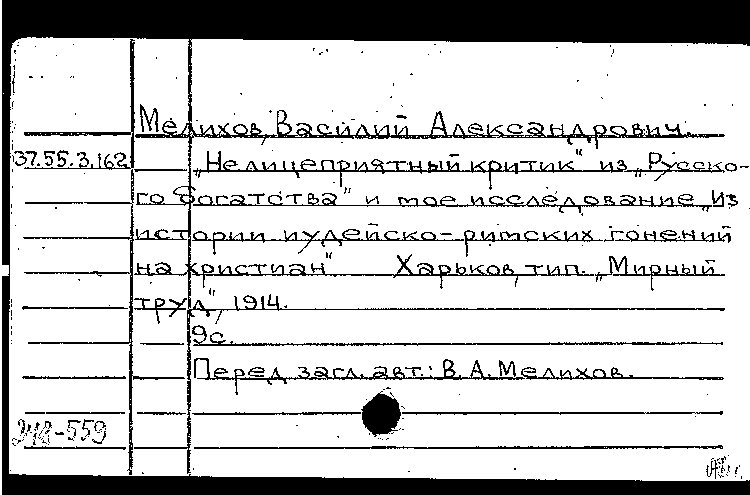 Мелихов, Василий Александрович.
37.55.3.162 „Нелицеприятный критик" из „Русско-
го богатства" и мое исследование „Из
истории иудейско-римских гонений
на христиан" Харьков, тип. „Мирный
труд", 1914.
9с.
Перед загл. авт.: В. А. Мелихов.
248-559